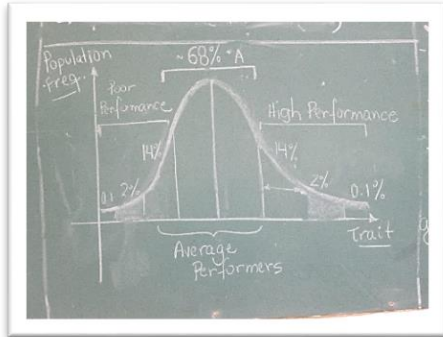 Population
Freq.
~68% "A
Poor
Perfomance
High Performance
14%
14%
0.1
2%
2%
0.1%
Trait
Average
Performers